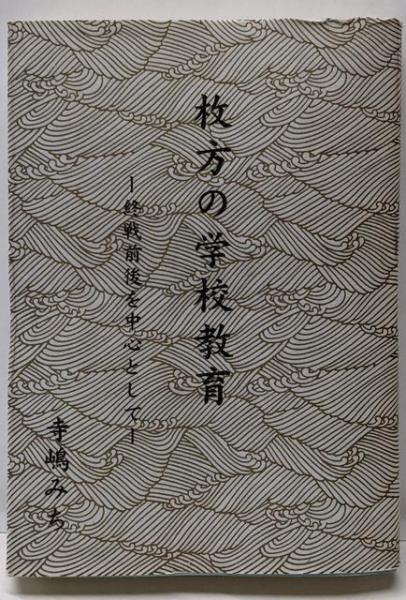 枚方の学校教育
ー終戦前後を中心としてー
寺嶋みち